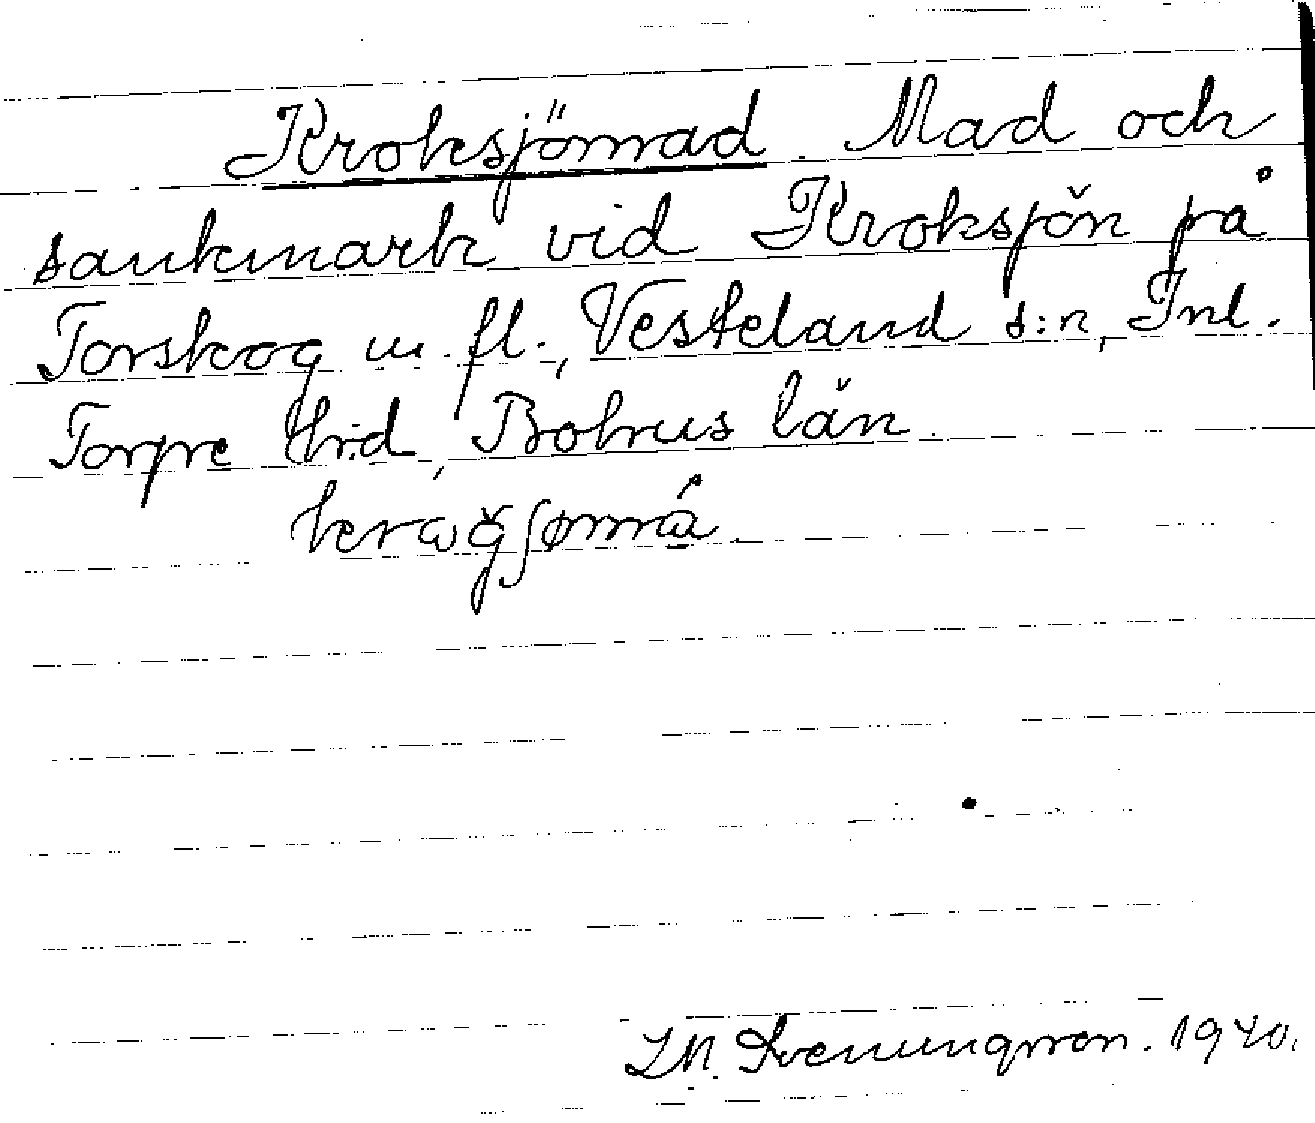 Kroksjömad. Mad och
sankmark vid Kroksjön på
Torskog m. fl., Vesteland s:n, Inl.
Torpe hrd, Bohus län.
J.M. Svenungsson. 1940.